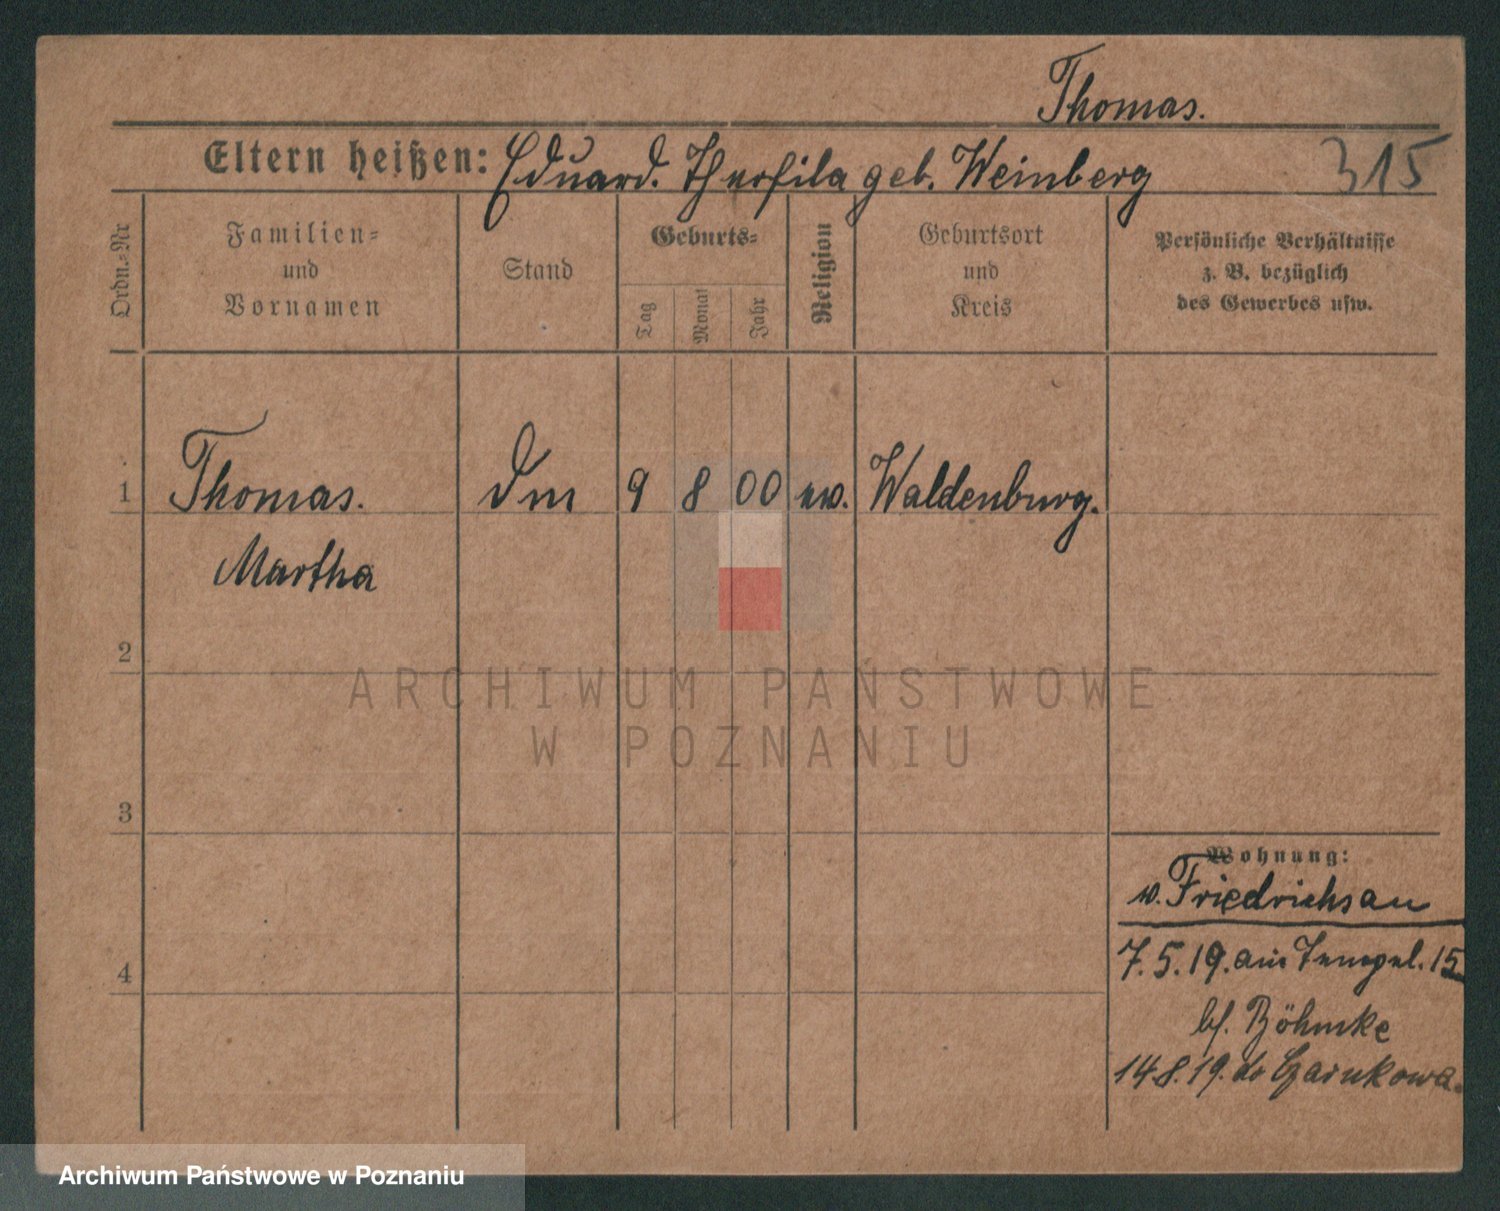 Thomas.
Eltern heißen: Eduard. Theofila geb. Weinberg 315
Ordn.=Nr
Familien=
und
Vornamen
Stand
Geburts=
Tag
Monat
Jahr
Religion
Geburtsort
und
Kreis
Persönliche Verhältnisse
z. B. bezüglich
des Gewerbes usw.
1 Thomas. Dm 9 8 00 ew. Waldenburg.
Martha
2
3
4
Wohnung:
w. Friedrichsau
7.5.19. 15
bf. Böhmke
14.8.19. do Czarnkowa.
ARCHIWUM PAŃSTWOWE
W POZNANIU
Archiwum Państwowe w Poznaniu